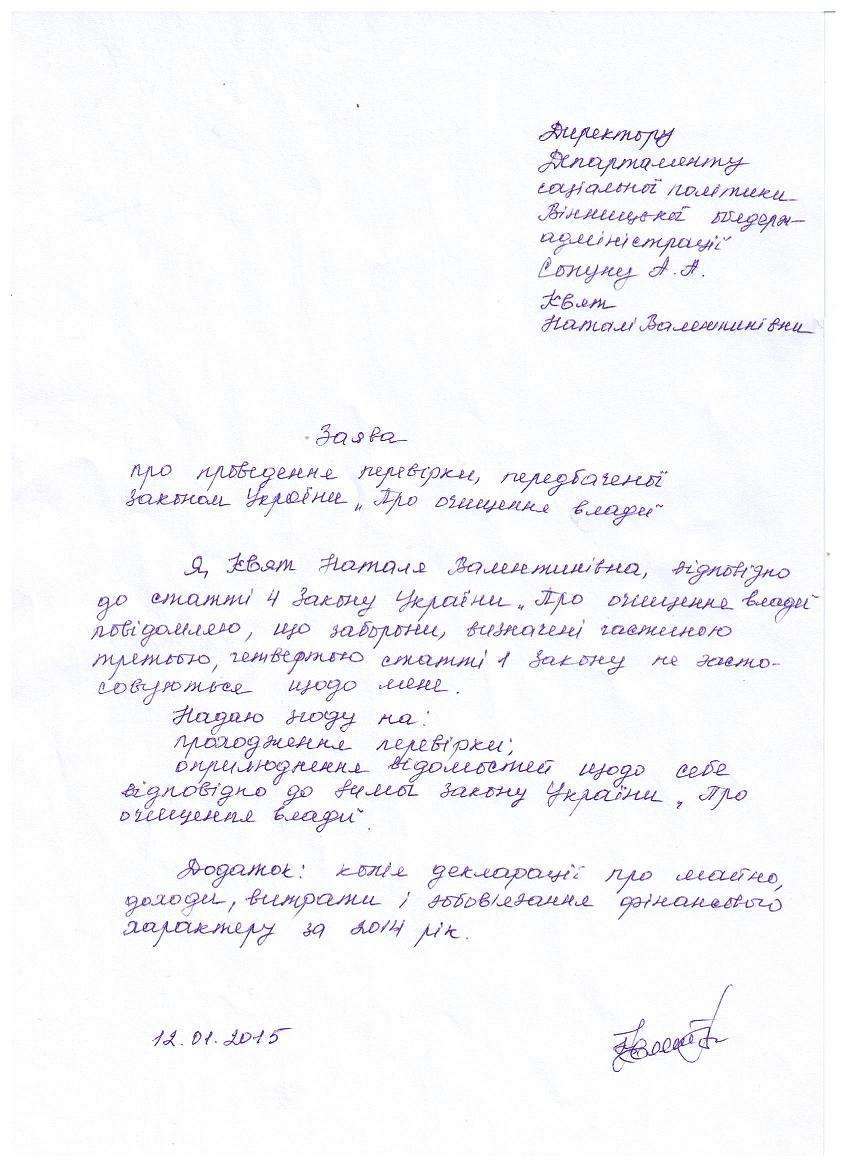 Директору
Департаменту
соціальної політики
Вінницької облдерж-
адміністрації
Сопуну А. А.
Квят
Наталі Валентинівни
Заява
про проведення перевірки, передбаченої
Законом України „Про очищення влади"
Я, Квят Наталя Валентинівна, відповідно
до статті 4 Закону України „Про очищення влади"
повідомляю, що заборони, визначені частиною
третьою, четвертою статті 1 Закону не засто-
совуються щодо мене.
Надаю згоду на:
проходження перевірки;
оприлюднення відомостей щодо себе
відповідно до вимог Закону України „Про
очищення влади".
Додаток: копія декларації про майно,
доходи, витрати і зобов'язання фінансового
характеру за 2014 рік.
12.01.2015